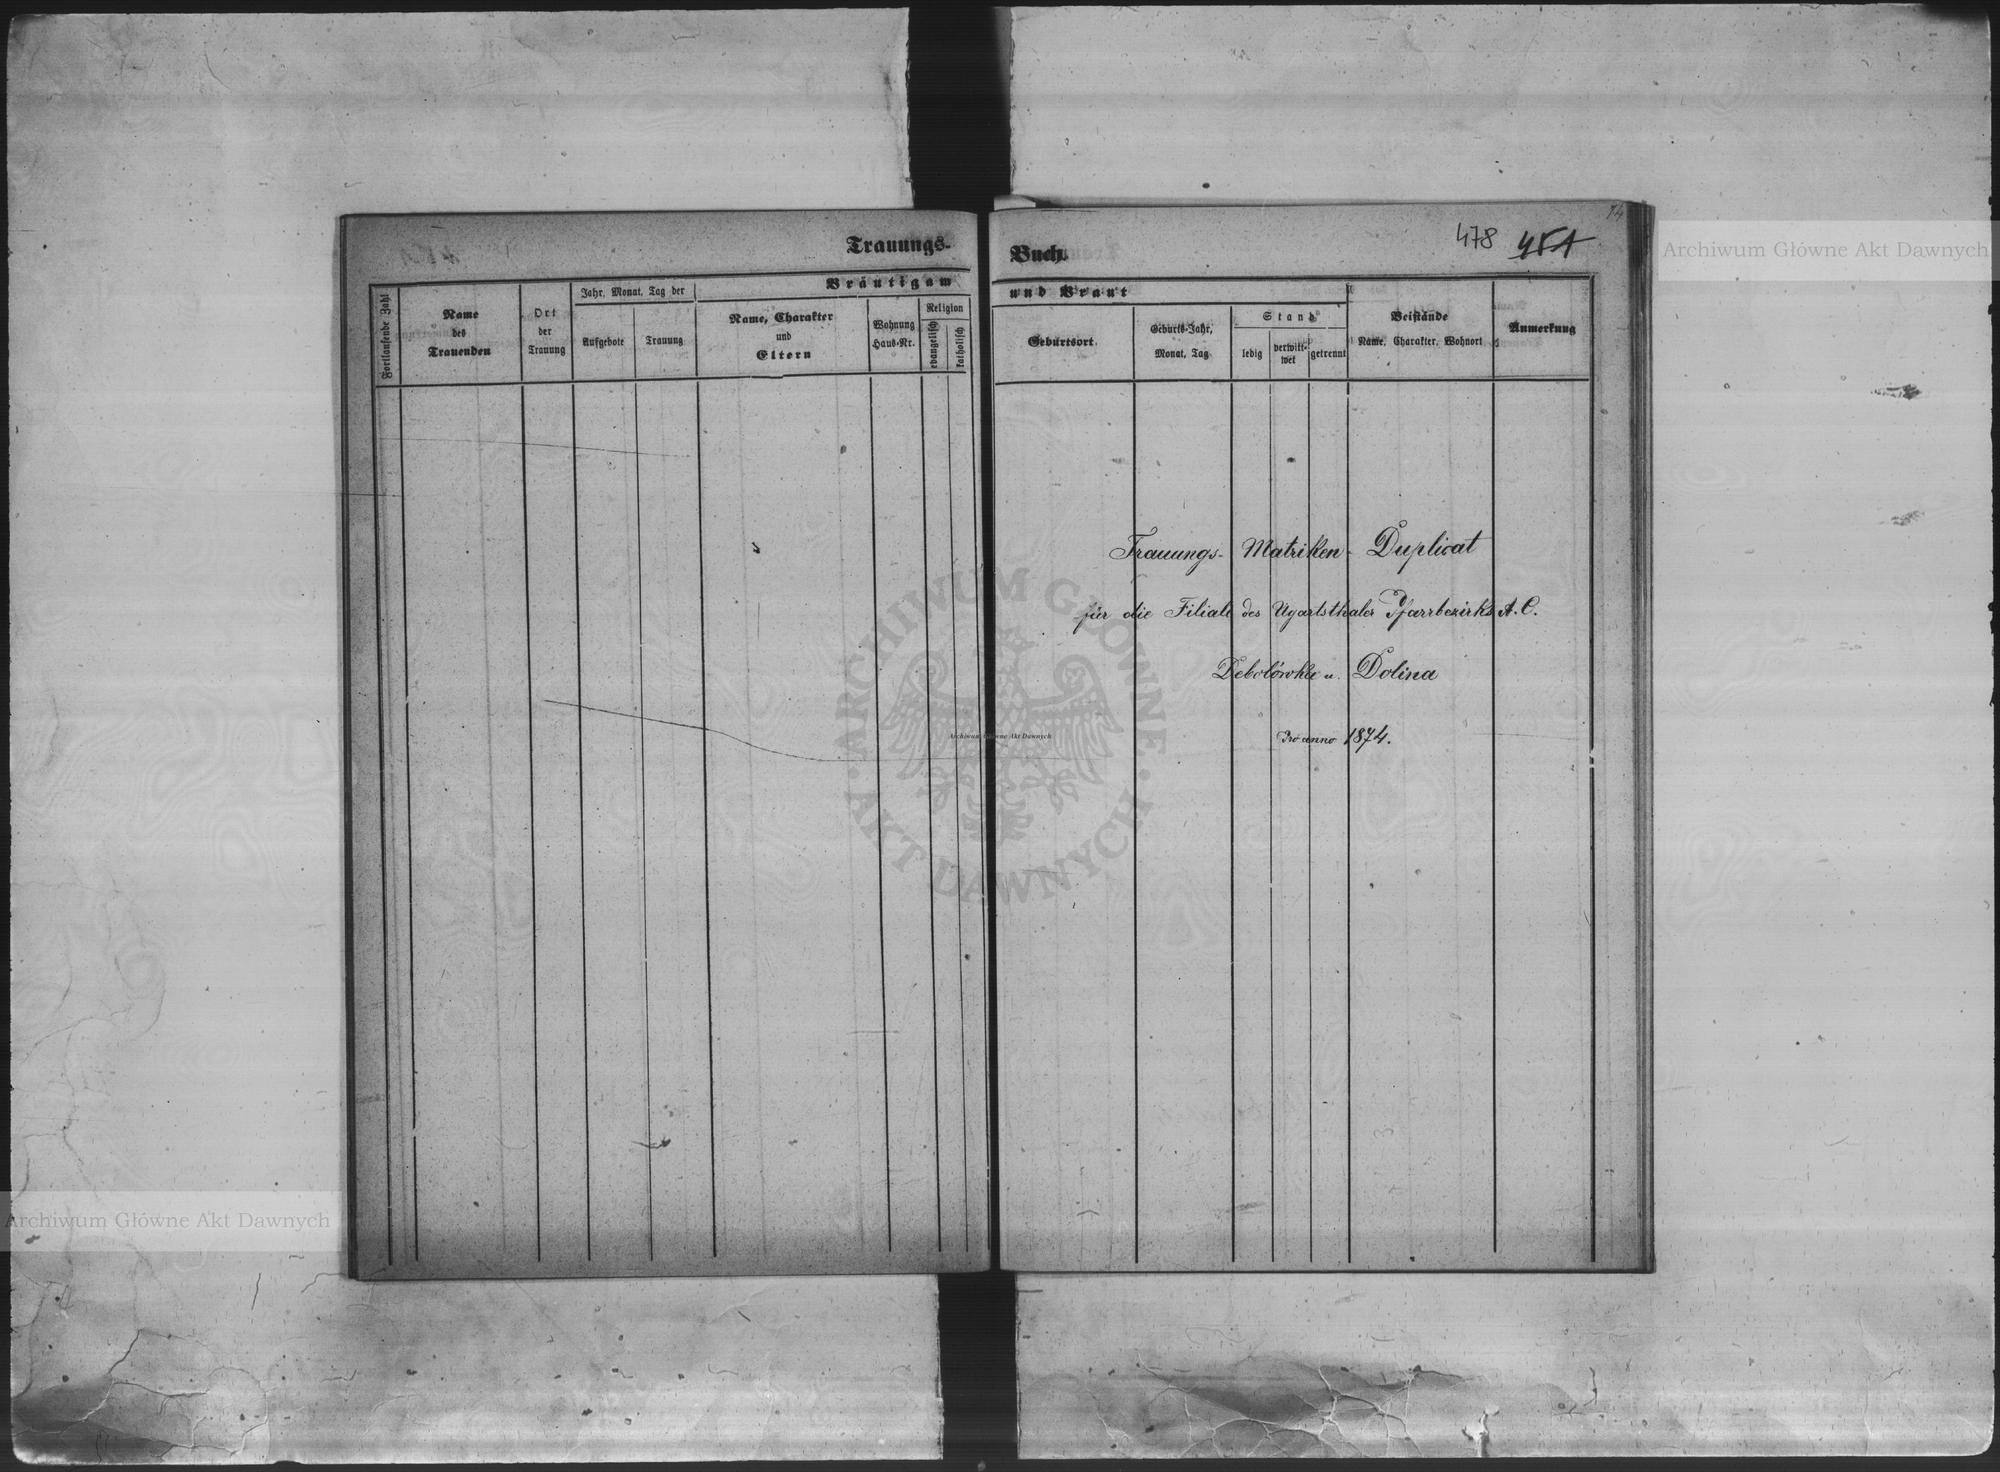 Trauungs-
Bräutigam
Fortlaufende Zahl
Name
des
Trauenden
Ort
der
Trauung
Jahr, Monat, Tag der
Aufgebote
Trauung
Name, Charakter
und
Eltern
Wohnung
Haus-Nr.
Religion
evangelisch
katholisch
14
478 451
Buch
und Braut
Geburtsort
Geburts-Jahr,
Monat, Tag
Stand
ledig
verwitt-
wet
getrennt
Beistände
Name, Charakter, Wohnort
Anmerkung
Trauungs- Matriken- Duplicat
für die Filiale des Ugartsthaler Pfarrbezirks A. C.
Debolówka u. Dolina
Pro anno 1874.
ARCHIWUM GŁÓWNE
AKT DAWNYCH
Archiwum Główne Akt Dawnych
Archiwum Główne Akt Dawnych
Archiwum Główne Akt Dawnych